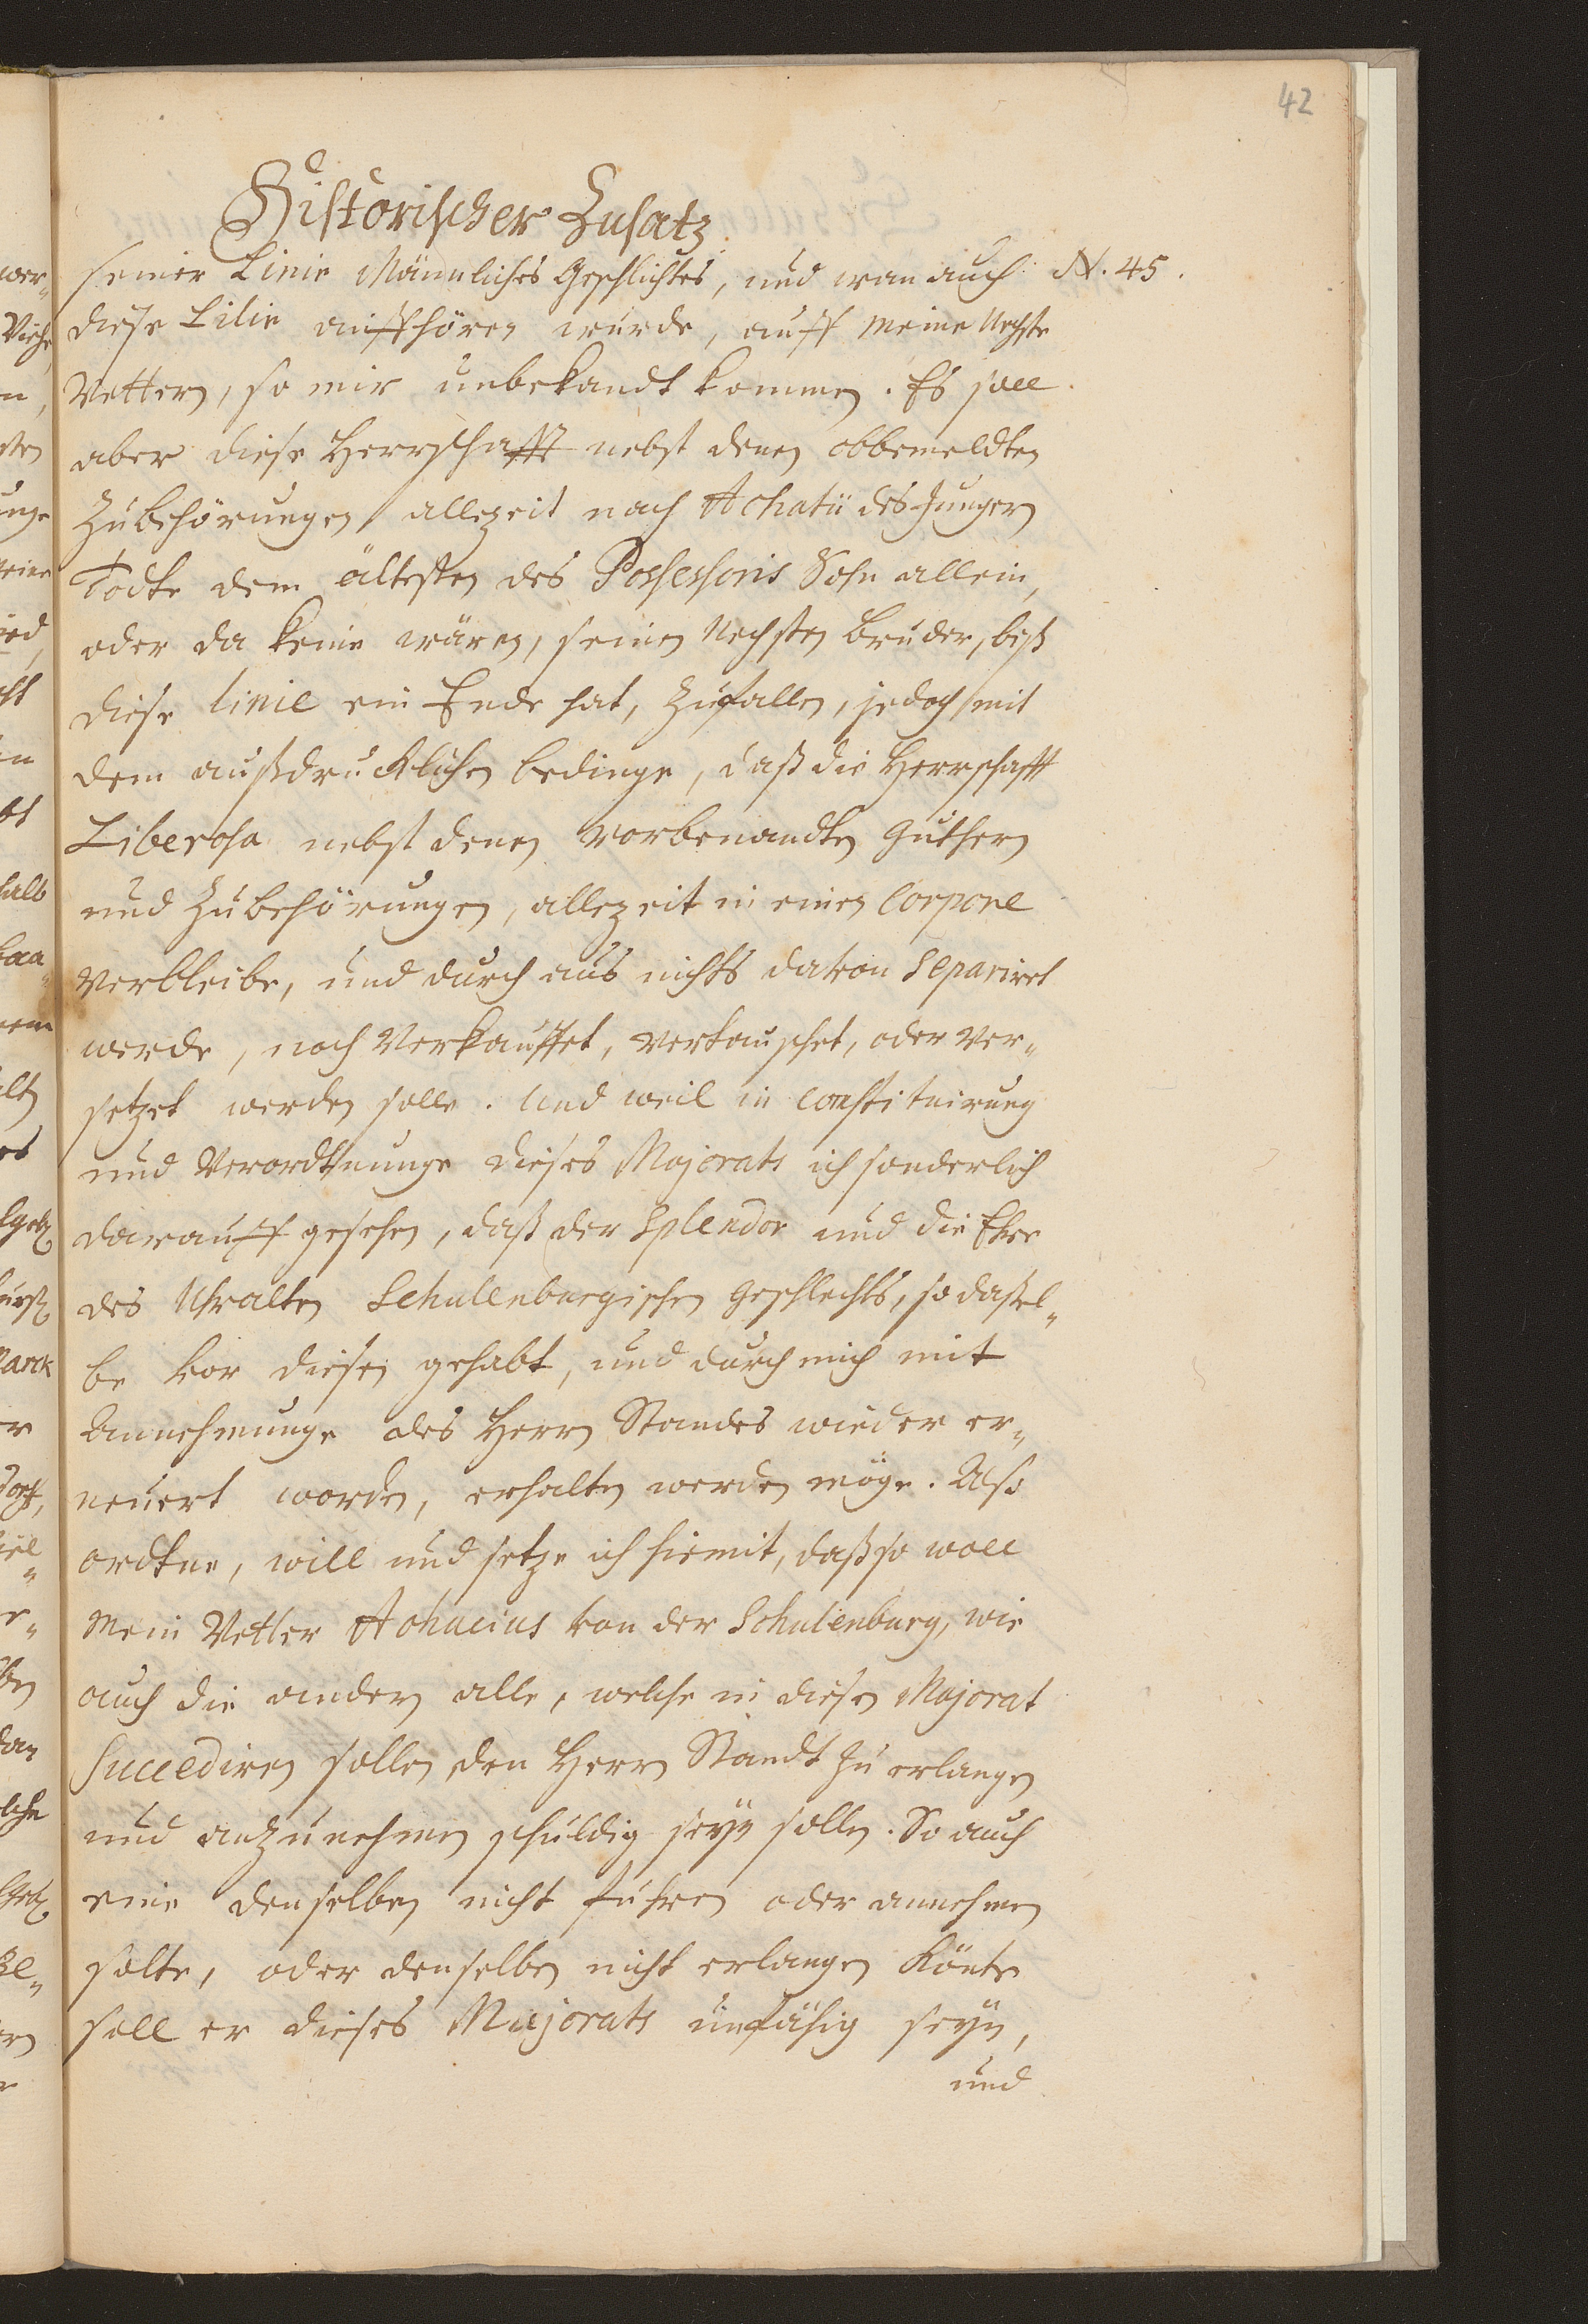 42
Historischer Zusatz
seiner Linie Männliches Geschlichtes, und wan auch N. 45.
diese Lilie auffhören würde, auff meine Nechste
Vettern, so mir unbekandt kommen. Es soll
aber diese Herrschafft nebst denen obbemeldten
Zubehörungen allezeit nach Achatii des Jungern
Todte dem ältesten des Possessoris Sohn allein,
oder da keine wären, seinen Nechsten Bruder, biß
diese linie ein Ende hat, Zufallen, jedoch mit
dem außdrucklichen bedinge, daß die Herrschafft
Liberosa nebst denen vorbenandten Guthern
und Zubehörungen, allezeit in einen Corpore
verbleibe, und durch aus nichts davon Separiret
werde, noch Verkauffet, vertauschet, oder ver„
setzet werden solle. Und weil in Constituirung
und Verordtnunge dieses Majorats ich sonderlich
darauff gesehen, daß der Splendor und die Ehre
des Uhralten Schulenburgischen Geschlechts, so dassel„
be vor diesen gehabt, und durch mich mit
Annehmunge des Herrn Standes wieder er„
neuert worden, erhalten werden möge. Also
ordtne, will und setze ich hiemit, daß so woll
mein Vetter Achacius von der Schulenburg, wie
auch die andern alle, welche in diesen Majorat
Succediren sollen den Herrn Standt zu erlangen
und anzunehmen schuldig seyn sollen. So auch
eine denselben nicht führen oder annehmen
solte, oder denselben nicht erlangen könte
soll er dieses Majorats unfähig seyn,
und